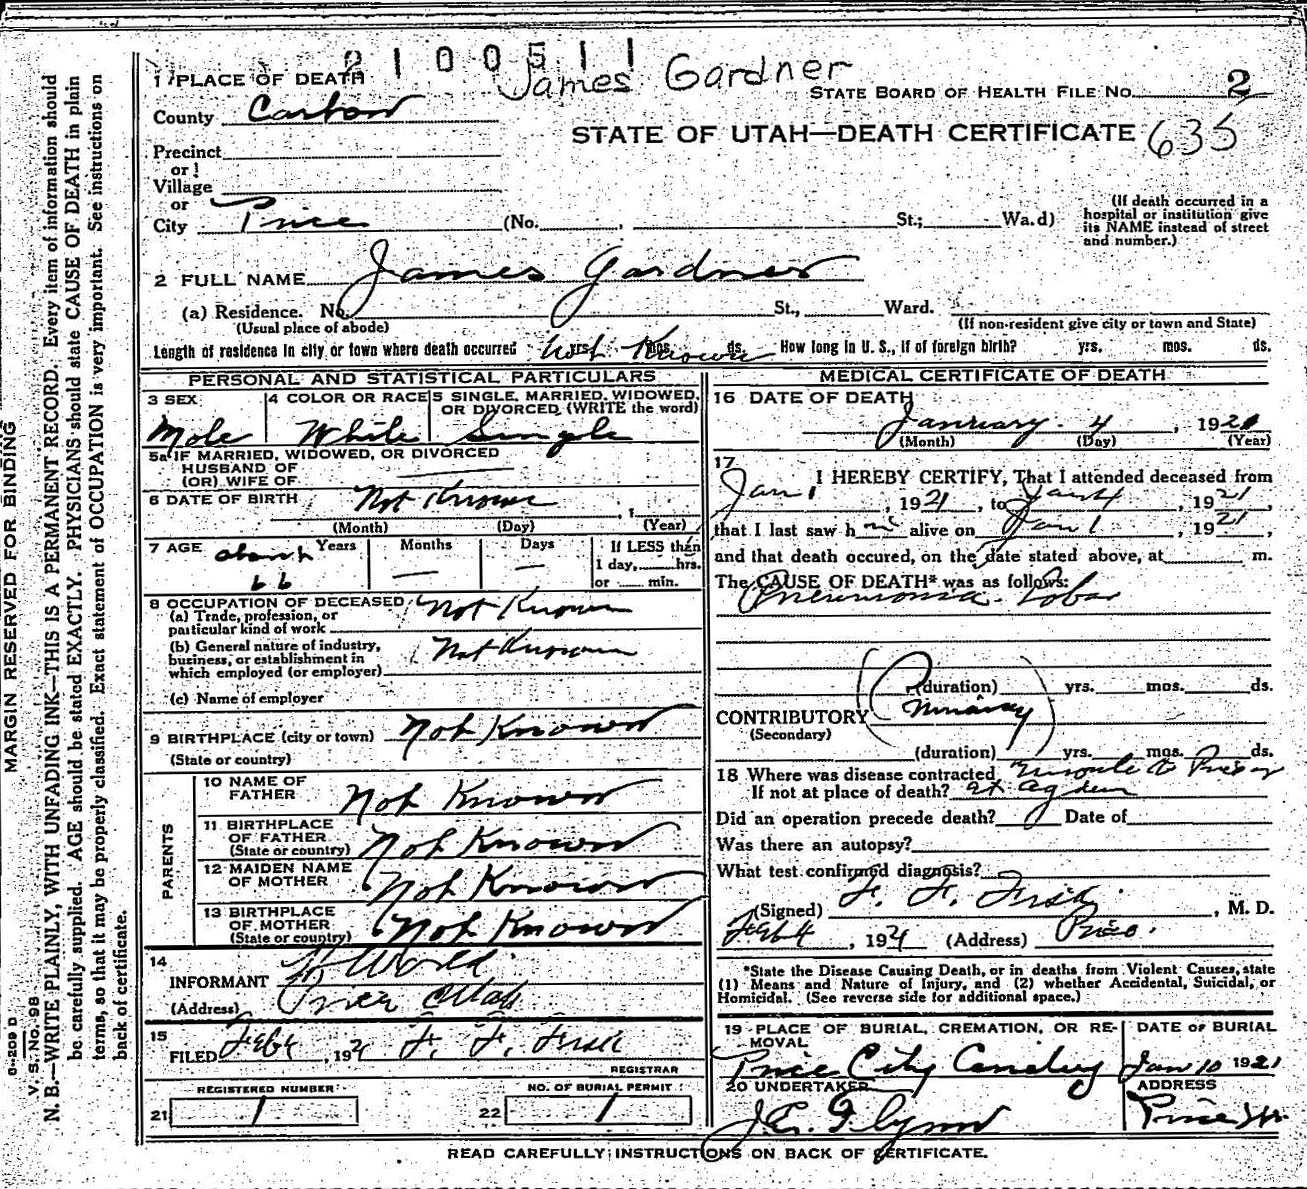 2100511
James Gardner
1 PLACE OF DEATH
STATE BOARD OF HEALTH FILE NO. 2
County Carbon
STATE OF UTAH—DEATH CERTIFICATE 635
Precinct
or
Village
or
City Price (No. , St.; Wa.d)
(If death occurred in a
hospital or institution give
its NAME instead of street
and number.)
2 FULL NAME James Gardner
(a) Residence. No. St., Ward.
(Usual place of abode)
(If non-resident give city or town and State)
Length of residence in city or town where death occurred yrs. mos. ds. Not Known How long in U. S., if of foreign birth? yrs. mos. ds.
PERSONAL AND STATISTICAL PARTICULARS
3 SEX
Male
4 COLOR OR RACE
White
5 SINGLE, MARRIED, WIDOWED,
OR DIVORCED (WRITE the word)
Single
5a IF MARRIED, WIDOWED, OR DIVORCED
HUSBAND OF
(OR) WIFE OF
6 DATE OF BIRTH Not Known , 1
(Month) (Day) (Year)
7 AGE about Years Months Days
66 — —
If LESS than
1 day, hrs.
or min.
8 OCCUPATION OF DECEASED
(a) Trade, profession, or
particular kind of work Not Known
(b) General nature of industry,
business, or establishment in
which employed (or employer) Not Known
(c) Name of employer
9 BIRTHPLACE (city or town) Not Known
(State or country)
PARENTS
10 NAME OF
FATHER Not Known
11 BIRTHPLACE
OF FATHER
(State or country) Not Known
12 MAIDEN NAME
OF MOTHER Not Known
13 BIRTHPLACE
OF MOTHER
(State or country) Not Known
14
INFORMANT
(Address) Price Utah
15
FILED Feb 4, 1921 F. F. Fisk
REGISTRAR
REGISTERED NUMBER
21 1
NO. OF BURIAL PERMIT
22 1
MEDICAL CERTIFICATE OF DEATH
16 DATE OF DEATH
January 4, 1921
(Month) (Day) (Year)
17
I HEREBY CERTIFY, That I attended deceased from
Jan 1, 1921, to Jan 4, 1921,
that I last saw h alive on Jan 1, 1921,
and that death occured, on the date stated above, at m.
The CAUSE OF DEATH* was as follows:
Pneumonia. Lobar
(duration) yrs. mos. ds.
CONTRIBUTORY
(Secondary)
(duration) yrs. mos. ds.
18 Where was disease contracted Enroute to Price
If not at place of death?
Did an operation precede death? Date of
Was there an autopsy?
What test confirmed diagnosis?
(Signed) F. F. Fisk, M. D.
Feb 4, 1921 (Address) Price.
*State the Disease Causing Death, or in deaths from Violent Causes, state
(1) Means and Nature of Injury, and (2) whether Accidental, Suicidal, or
Homicidal. (See reverse side for additional space.)
19 PLACE OF BURIAL, CREMATION, OR RE-
MOVAL
Price City Cemetery
DATE OF BURIAL
Jan 10 1921
20 UNDERTAKER
J. E. Flynn
ADDRESS
Price
READ CAREFULLY INSTRUCTIONS ON BACK OF CERTIFICATE.
MARGIN RESERVED FOR BINDING
V. S. No. 98
N. B.—WRITE PLAINLY, WITH UNFADING INK—THIS IS A PERMANENT RECORD. Every item of information should
be carefully supplied. AGE should be stated EXACTLY. PHYSICIANS should state CAUSE OF DEATH in plain
terms, so that it may be properly classified. Exact statement of OCCUPATION is very important. See instructions on
back of certificate.